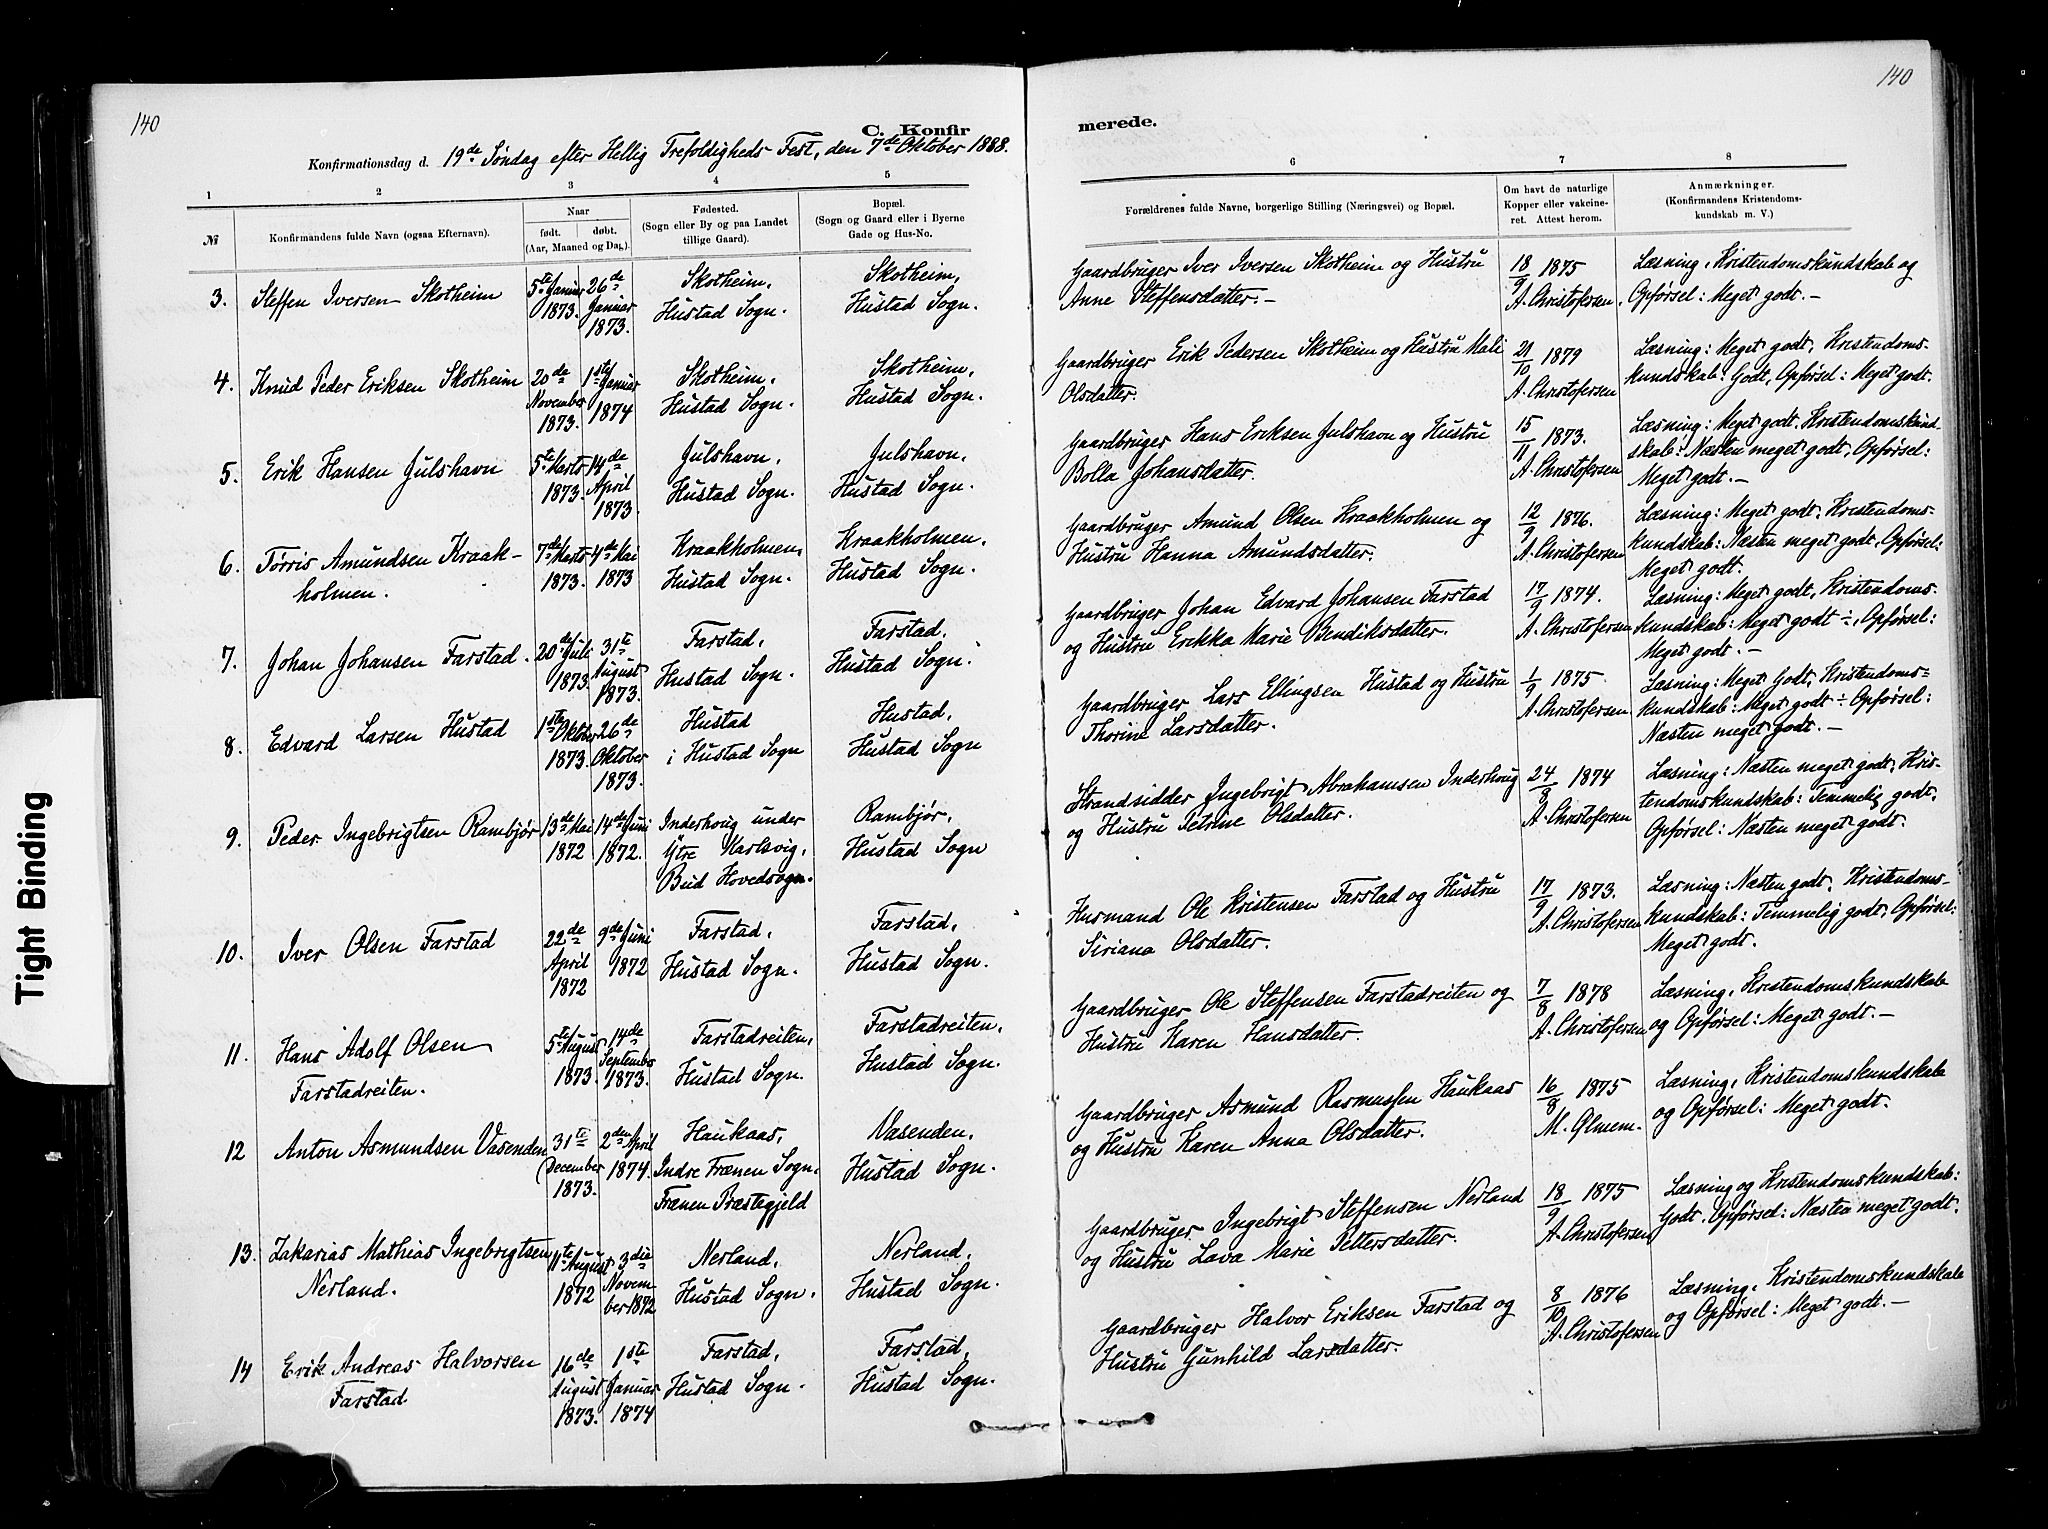 140
140
C. Konfir
merede.
Konfirmationsdag d. 19de Søndag efter Hellig Trefoldigheds Fest, den 7de Oktober 1888.
1
2
3
4
5
6
7
8
№
Konfirmandens fulde Navn (ogsaa Efternavn).
Naar
født.
døbt.
(Aar, Maaned og Dag).
Fødested.
(Sogn eller By og paa Landet
tillige Gaard).
Bopæl.
(Sogn og Gaard eller i Byerne
Gade og Hus-No.
Forældrenes fulde Navne, borgerlige Stilling (Næringsvei) og Bopæl.
Om havt de naturlige
Kopper eller vakcine-
ret. Attest herom.
Anmærkninger.
(Konfirmandens Kristendoms-
kundskab m. V.)
3.
Steffen Iversen Skotheim
5te Januar
1873.
26de
Januar
1873.
Skotheim,
Hustad Sogn.
Skotheim,
Hustad Sogn.
Gaardbruger Iver Iversen Skotheim og Hustru
Anne Steffensdatter.-
18/9 1875
A. Christofersen.
Læsning, Kristendomskundskab og
Opførsel: Meget godt.-
4.
Knud Peder Eriksen Skotheim
20de
November
1873.
1ste Januar
1874
Skotheim.
Hustad Sogn.
Skotheim,
Hustad Sogn.
Gaardbruger Erik Pedersen Skotheim og Hustru Mali
Olsdatter.
21/10 1879
A. Christofersen
Læsning: Meget godt, Kristendoms-
kundskab: Godt, Opførsel: Meget godt.
5.
Erik Hansen Julshavn
5te Marts
1873.
14de
April
1873.
Julshavn,
Hustad Sogn.
Julshavn,
Hustad Sogn.
Gaardbruger Hans Eriksen Julshavn og Hustru
Bolla Johansdatter.
15/11 1873.
A. Christofersen
Læsning: Meget godt, Kristendomskund
skab: Næsten meget godt, Opførsel:
Meget godt.-
6.
Tørris Amundsen Kraak-
holmen.
7de Marts
1873.
4de Mai
1873
Kraakholmen,
Hustad Sogn.
Kraakholmen.
Hustad Sogn.
Gaardbruger Amund Olsen Kraakholmen og
Hustru Hanna Amundsdatter.
12/9 1876.
A. Christofersen
Læsning: Meget godt, Kristendoms-
kundskab: Næsten meget godt, Opførsel:
Meget godt.
7.
Johan Johansen Farstad.
20de Juli
1873.
31te
August
1873.
Farstad,
Hustad Sogn.
Farstad.
Hustad Sogn.
Gaardbruger Johan Edvard Johansen Farstad
og Hustru Erikka Marie Bendiksdatter.
17/9 1874.
A. Christofersen
Læsning: Meget godt, Kristendoms-
kundskab: Meget godt ÷, Opførsel:
Meget godt.-
8.
Edvard Larsen Hustad
1ste Oktober
1873.
26de
Oktober
1873.
Hustad
i Hustad Sogn
Hustad,
Hustad Sogn
Gaardbruger Lars Ellingsen Hustad og Hustru
Thorine Larsdatter.
1/9 1875.
A. Christofersen
Læsning: Meget Godt, Kristendoms-
kundskab: Meget godt ÷ Opførsel:
Næsten meget godt.-
9.
Peder Ingebrigtsen Rambjør
13de Mai
1872
14de Juni
1872.
Inderhoug under
Ytre Karlsvig,
Bud Hovedsogn.
Rambjør,
Hustad Sogn
Strandsidder Ingebrigt Abrahamsen Inderhoug
og Hustru Petrine Olsdatter.
24/8 1874
A. Christofersen
Læsning: Næsten meget godt, Kris-
tendomskundskab: Temmelig godt,
Opførsel: Næsten meget godt.
10.
Iver Olsen Farstad
22de
April
1872
9de Juni
1872
Farstad,
Hustad Sogn.
Farstad,
Hustad Sogn.
Husmand Ole Kristensen Farstad og Hustru
Siriana Olsdatter.
17/9 1873.
A. Christofersen
Læsning: Næsten godt, Kristendoms-
kundskab: Temmelig godt, Opførsel:
Meget godt.
11.
Hans Adolf Olsen
Farstadreiten.
5te August
1873.
14de
September
1873.
Farstadreiten,
Hustad Sogn.
Farstadreiten,
Hustad Sogn.
Gaardbruger Ole Steffensen Farstadreiten og
Hustru Karen Hansdatter.
7/8 1878
A. Christofersen
Læsning, Kristendomskundskab
og Opførsel: Meget godt.-
12
Anton Asmundsen Vasenden
31te
December
1873.
2den April
1874
Haukaas,
Indre Frænen Sogn,
Frænen Præstegjeld
Vasenden,
Hustad Sogn.
Gaardbruger Asmund Rasmussen Haukaas
og Hustru Karen Anna Olsdatter.
16/8 1875
M. Glmem.
Læsning, Kristendomskundskab
og Opførsel: Meget godt.
13.
Zakarias Mathias Ingebrigtsen
Nerland.
11te August
1872
3die
Novem-
ber 1872
Nerland,
Hustad Sogn.
Nerland.
Hustad Sogn.
Gaardbruger Ingebrigt Steffensen Nerland
og Hustru Lava Marie Pettersdatter.
18/9 1875
A. Christofersen
Læsning og Kristendomskundskab:
Godt. Opførsel: Næsten meget godt.
14
Erik Andreas Halvorsen
Farstad.
16de
August
1873.
1ste
Januar
1874
Farstad,
Hustad Sogn.
Farstad,
Hustad Sogn.
Gaardbruger Halvor Eriksen Farstad og
Hustru Gunhild Larsdatter.
8/10 1876
A. Christofersen
Læsning, Kristendomskundskab
og Opførsel: Meget godt.-
Tight Binding